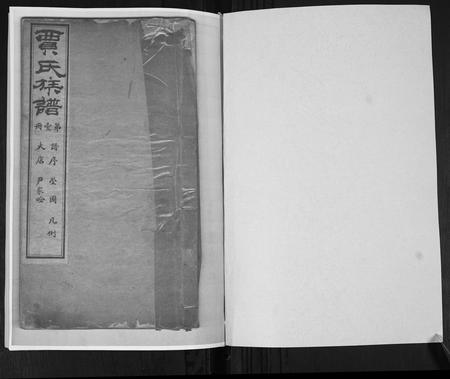 賈氏族譜
第壹冊
譜序 塋圖 凡例
大店 尹家峪